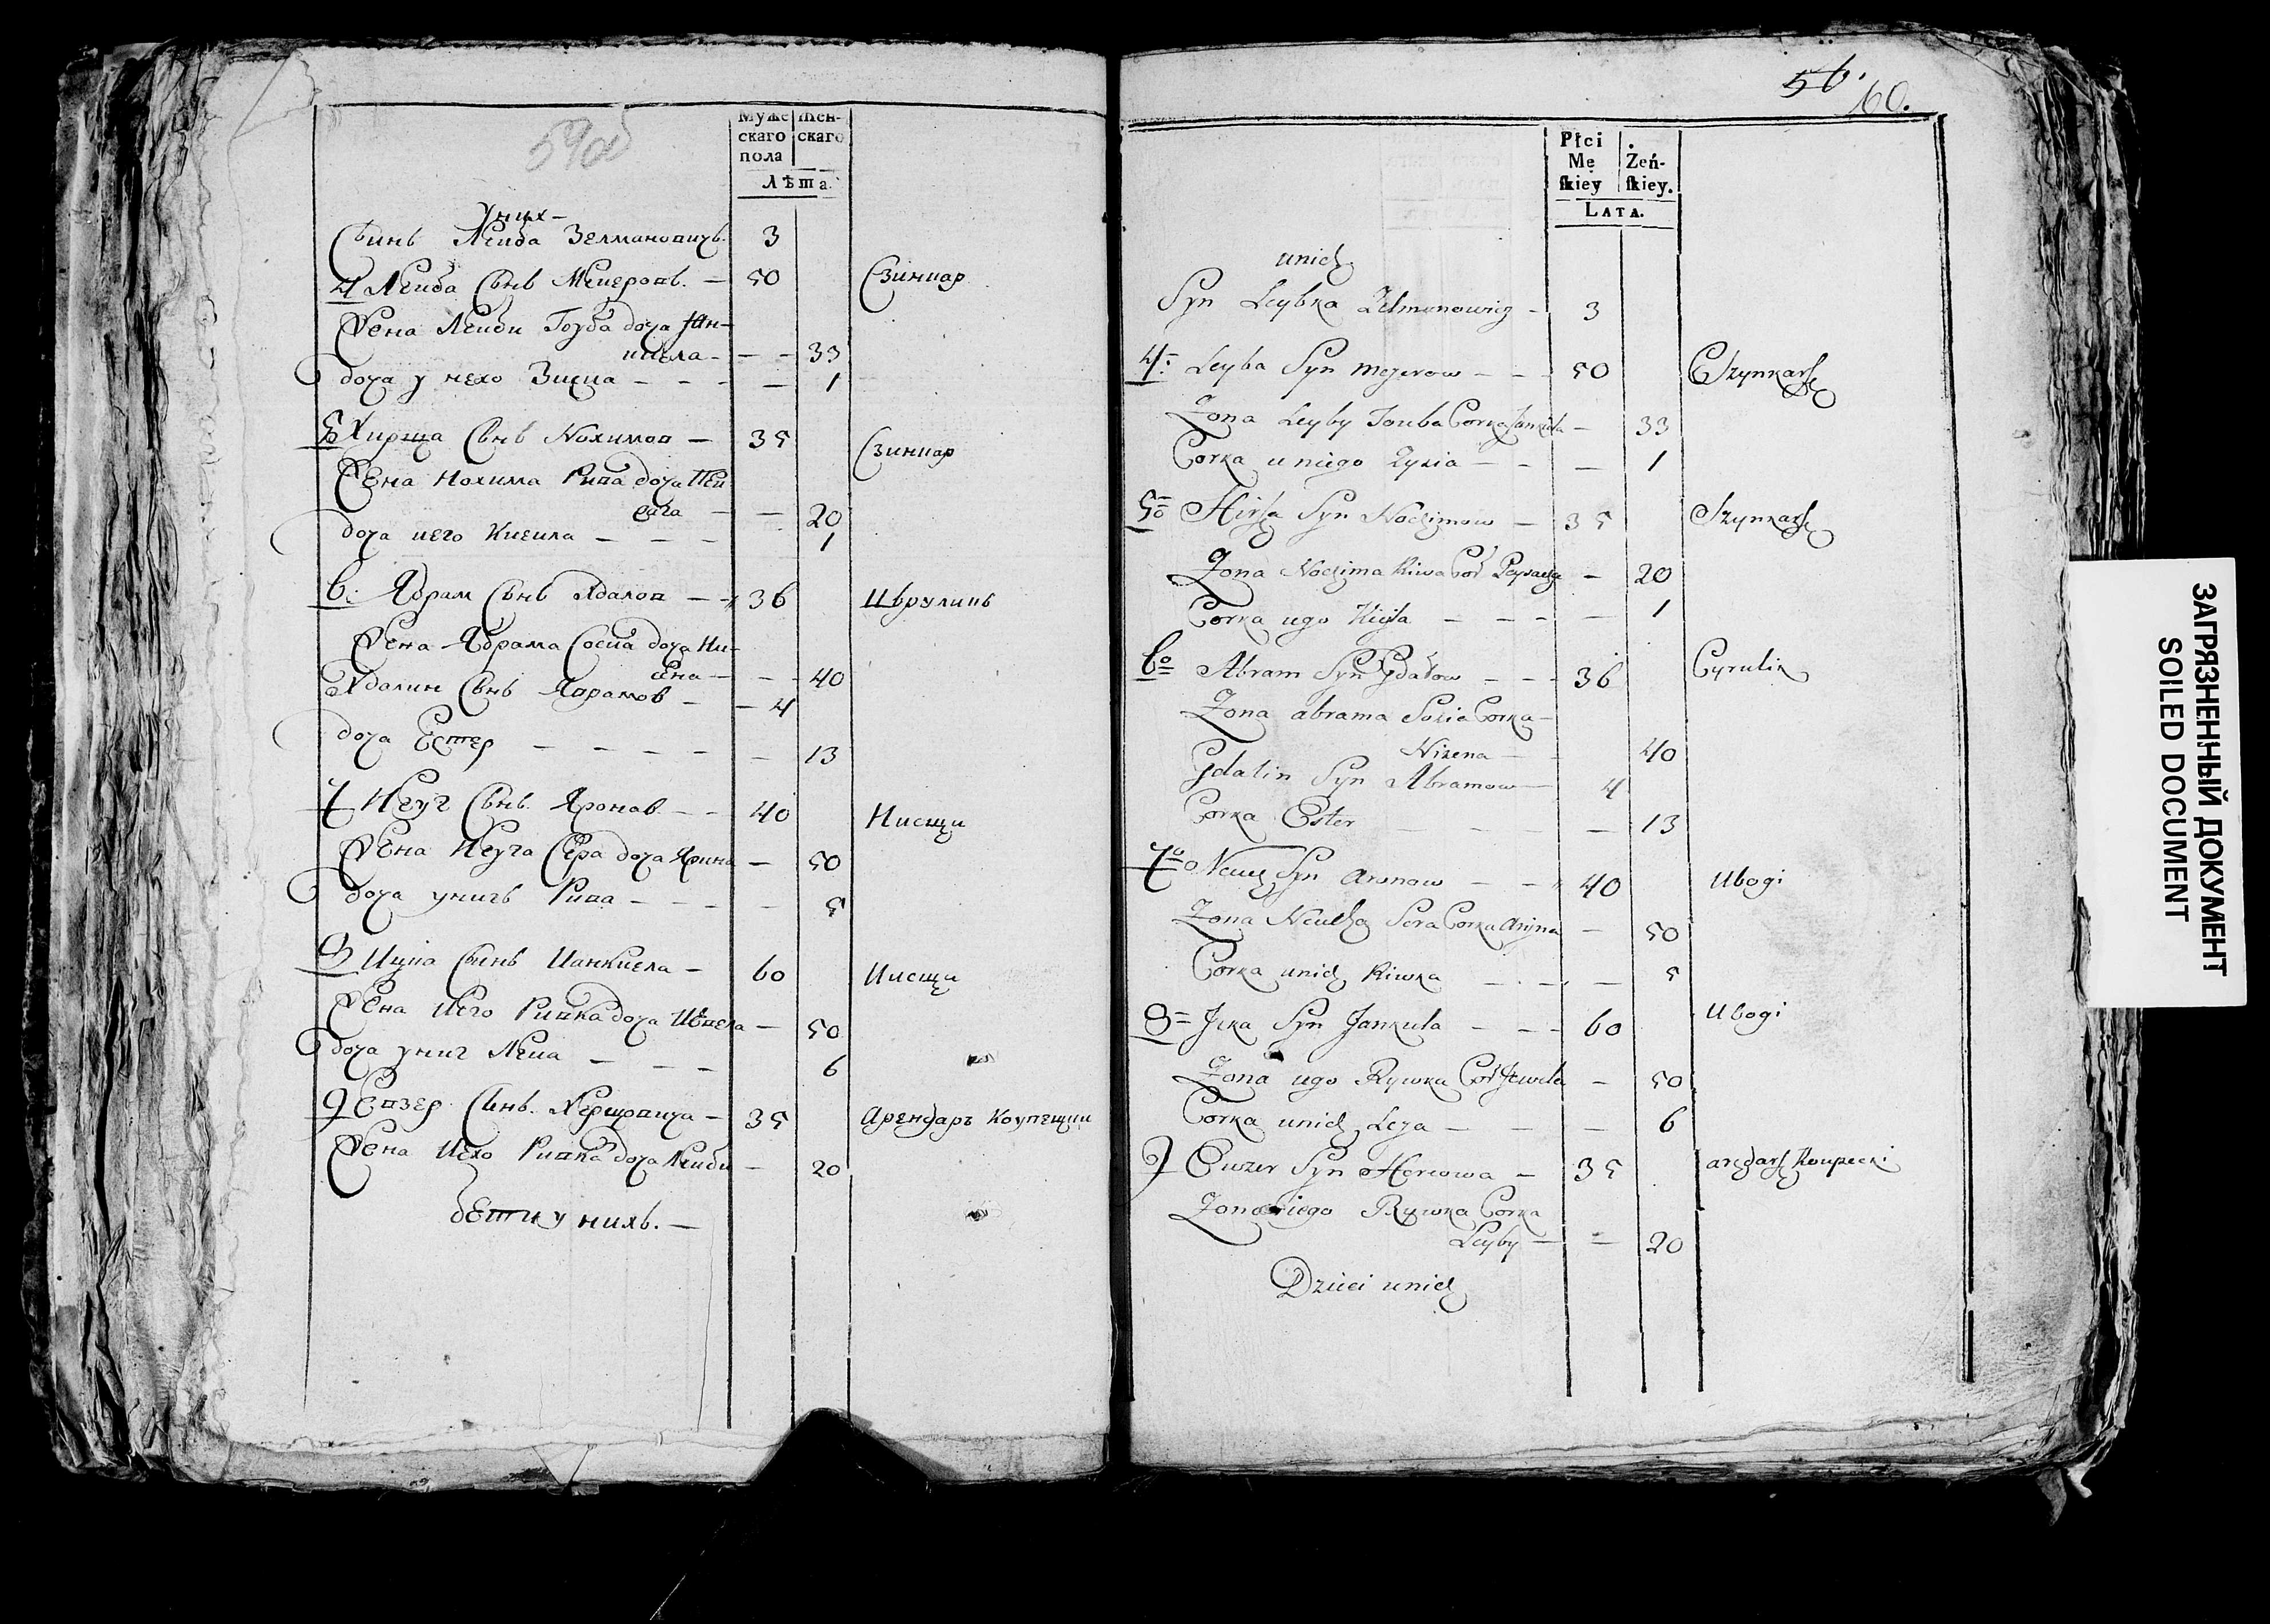 59об
Муже
скаго
пола
Жен-
скаго
Лѣта.
Уних-
Сынь Леиба Зелмановичь. 3
4 Леиба Сынь Меиеровь. — 50 Сзинкар
Жена Леиби Тоуба доча Ян-
киела - — — 33
доча у нехо Зисиа — — — 1
5 Хирша Сынь Нохимов — 35 Сзинкар
Жена Нохима Рива доча Пеи
сага — — 20
доча иего Киеила — — — 1
6: Абрам Сынь Гдалов — — 36 Цырулинь
Жена Абрама Сосиа доча Ни-
сена — — 40
Гдалин Сынь Абрамов — — 4
доча Естер — — — — — 13
7 Неуг Сынь. Аронов. — — 40 Нисщи
Жена Неуга Сера доча Арина — 50
доча унигь Рива — — — — 5
8 Ицка Сынь Ианкиела — 60 Нисщи
Жена Иего Ривка доча Иевела — 50
доча униг Леиа — — — 6
9 Евзер Сынь. Хершовича — 35 Арендарь Коупецки
Жена Иехо Ривка доча Леиби — 20
дети у нихь. —
56.
60.
Płci
Mę
skiey
Żeń-
skiey.
LATA.
unich
Syn Leybka Zelmanowicz - 3
4: Leyba Syn Mejerow — — 50 Szynkarz
Zona Leyby Touba Corka Jankiela — 33
Corka u niego Zysia — — — 1
5o Hirsza Syn Nochimow — 35 Szynkarz
Zona Nochima Riwa Cor Peysacha — 20
Corka iego Kieyla — — — — 1
6o Abram Syn Gdałow — — 36 Cyrulik
Zona abrama Sosia Corka —
Nisena — — 40
Gdalin Syn Abramow — 4
Corka Ester — — — — 13
7o Neuch Syn Aronow — — 40 Ubogi
Zona Neucha Sera Corka Aryna — 50
Corka unich Riwka — — — 5
8 Icka Syn Jankiela — — — 60 Ubogi
Zona iego Rywka Cor Jewela — 50
Corka unich Leja — — — 6
9 Ewzer Syn Hercowa — 35 arędarz Koupecki
Zona iego Rywka Corka
Leyby — — 20
Dzieci unich
ЗАГРЯЗНЕННЫЙ ДОКУМЕНТ
SOILED DOCUMENT